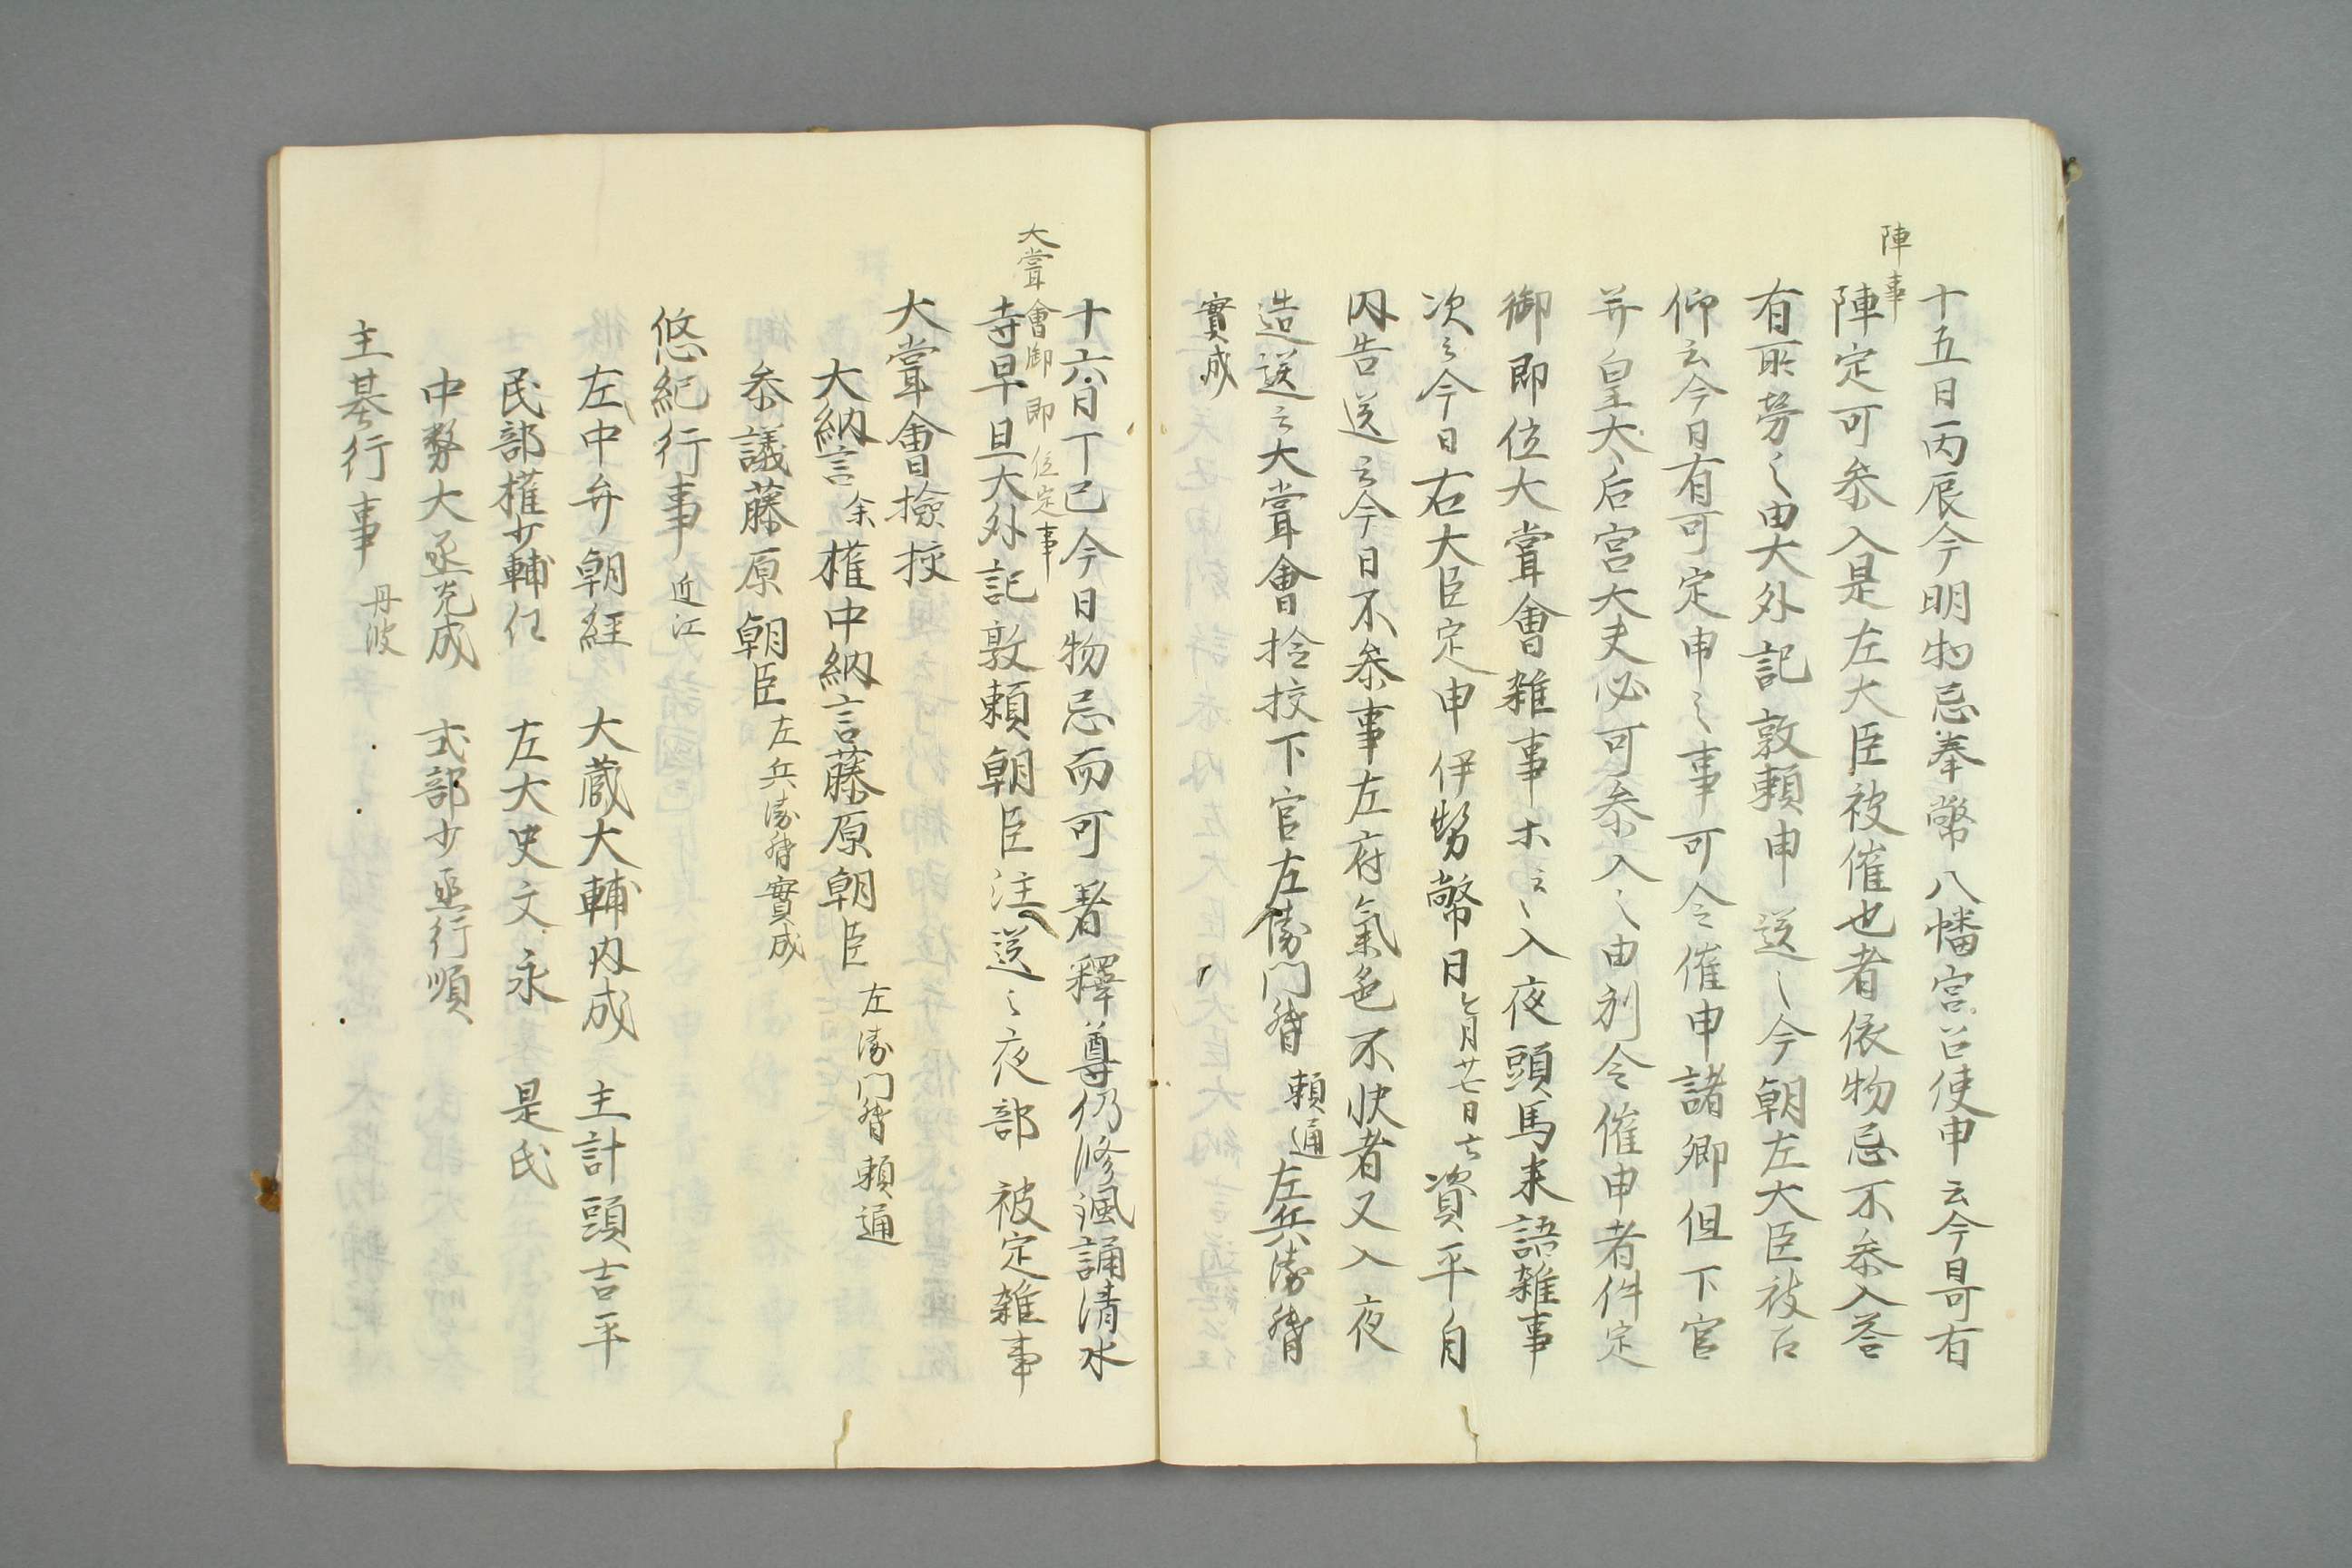 陣事
十五日丙辰今明物忌奉幣八幡宮召使申云今日可有
陣定可参入是左大臣被催也者依物忌不参入答
有所労之由大外記敦頼申送之今朝左大臣被召
仰云今日有可定申之事可令催申諸卿但下官
并皇太后宮大夫必可参入之由別令催申者件定
御即位大嘗會雑事ホ云々入夜頭馬来語雑事
次云今日右大臣定申伊勢幣日七月廿七日云々資平自
内告送云今日不参事左府氣色不快者又入夜
造送云大嘗會撿挍下官左衛門督頼通左兵衛督
實成
大嘗會御即位定事
十六日丁巳今日物忌而可著釋尊仍修諷誦清水
寺早旦大外記敦頼朝臣注送之夜部被定雑事
大嘗會撿挍
大納言余権中納言藤原朝臣左衛門督頼通
参議藤原朝臣左兵衛督實成
悠紀行事近江
左中弁朝経 大蔵大輔内成 主計頭吉平
民部権少輔任 左大史文永 是氏
中務大丞光成 式部少丞行順
主基行事丹波